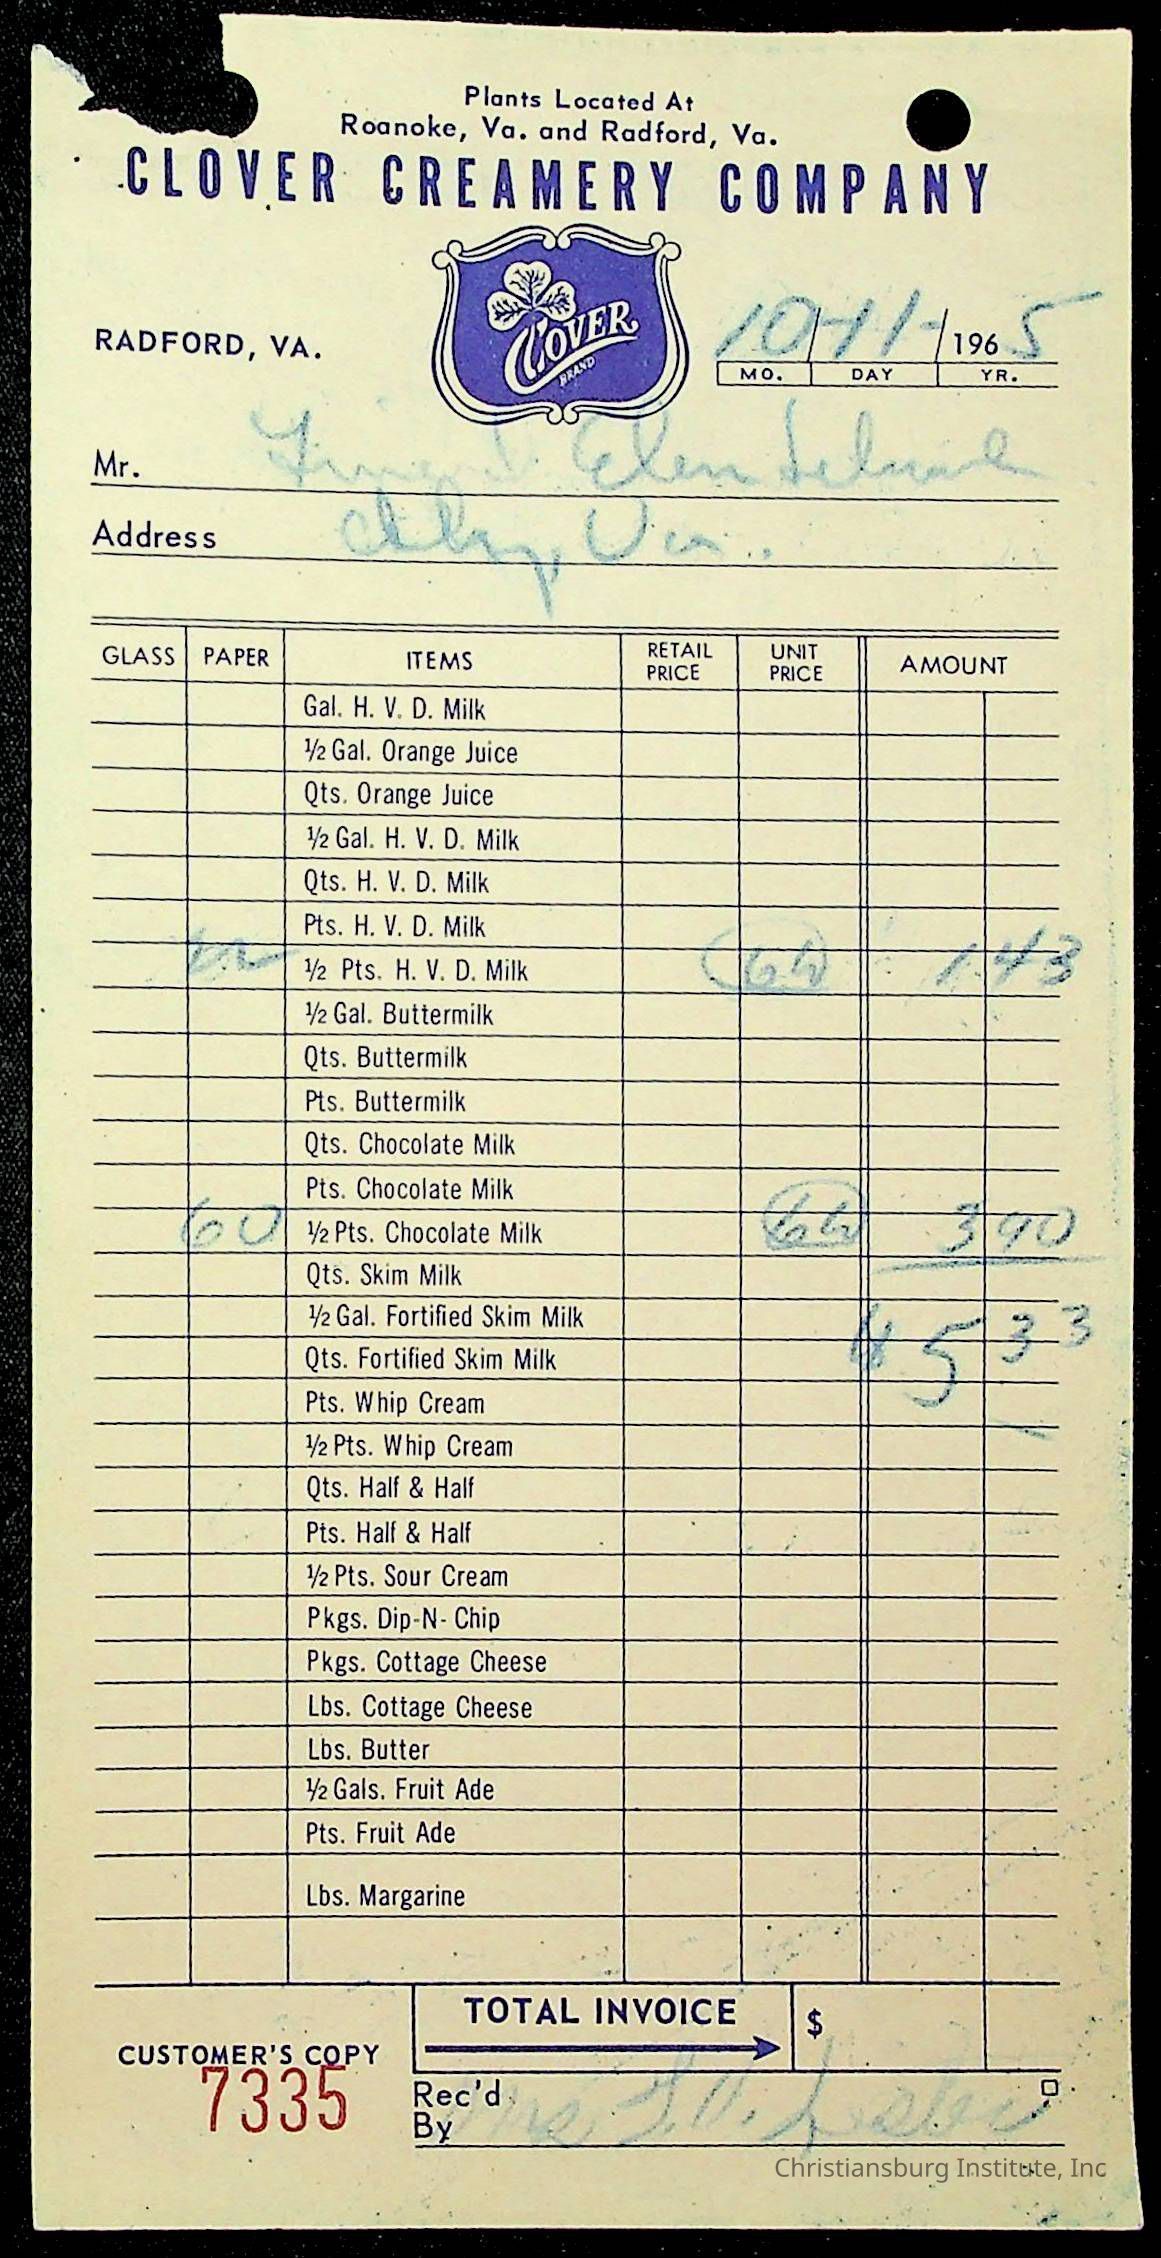 Plants Located At
Roanoke, Va. and Radford, Va.
CLOVER CREAMERY COMPANY
CLOVER
BRAND
RADFORD, VA.
10/11/1965
MO. DAY YR.
Mr.
Address Va.
GLASS PAPER ITEMS RETAIL PRICE UNIT PRICE AMOUNT
Gal. H. V. D. Milk
½ Gal. Orange Juice
Qts. Orange Juice
½ Gal. H. V. D. Milk
Qts. H. V. D. Milk
Pts. H. V. D. Milk
½ Pts. H. V. D. Milk 1 43
½ Gal. Buttermilk
Qts. Buttermilk
Pts. Buttermilk
Qts. Chocolate Milk
Pts. Chocolate Milk
60 ½ Pts. Chocolate Milk 3 90
Qts. Skim Milk
½ Gal. Fortified Skim Milk 5 33
Qts. Fortified Skim Milk
Pts. Whip Cream
½ Pts. Whip Cream
Qts. Half & Half
Pts. Half & Half
½ Pts. Sour Cream
Pkgs. Dip-N-Chip
Pkgs. Cottage Cheese
Lbs. Cottage Cheese
Lbs. Butter
½ Gals. Fruit Ade
Pts. Fruit Ade
Lbs. Margarine
TOTAL INVOICE $
CUSTOMER'S COPY
7335
Rec'd By Mrs.
Christiansburg Institute, Inc